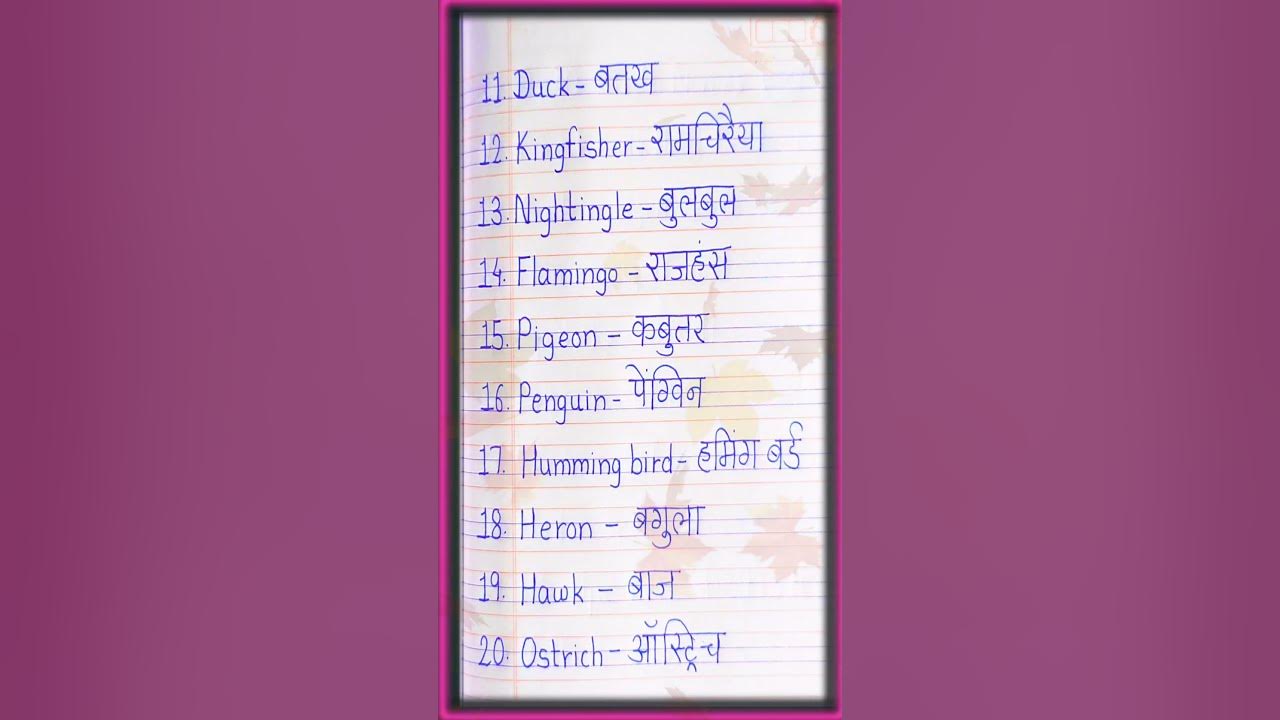 11. Duck - बतख
12. Kingfisher - रामचिरैया
13. Nightingle - बुलबुल
14. Flamingo - राजहंस
15. Pigeon - कबुतर
16. Penguin - पेंग्विन
17. Humming bird - हमिंग बर्ड
18. Heron - बगुला
19. Hawk - बाज
20. Ostrich - ऑस्ट्रिच